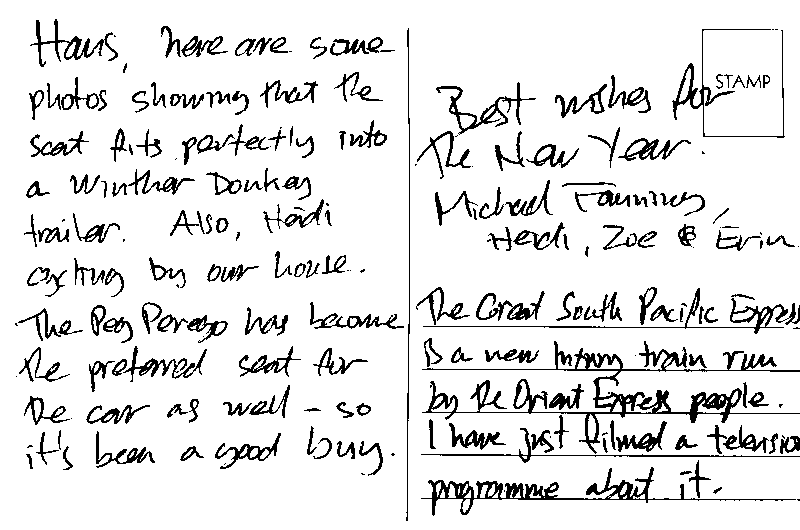 Hans, here are some
photos showing that the
seat fits perfectly into
a Winther Donkey
trailer. Also, Heidi
cycling by our house.
The Peg Perego has become
the preferred seat for
the car as well - so
it's been a good buy.
STAMP
Best wishes for
the New Year.
Michael Fanning,
Heidi, Zoe & Erin
The Great South Pacific Express
is a new luxury train run
by the Orient Express people.
I have just filmed a television
programme about it.